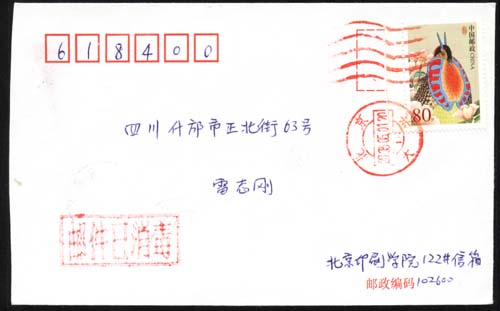 618400
中国邮政
CHINA
80
四川什邡市正北街63号
雷志刚
邮件已消毒
北京印刷学院122#信箱
邮政编码 102600